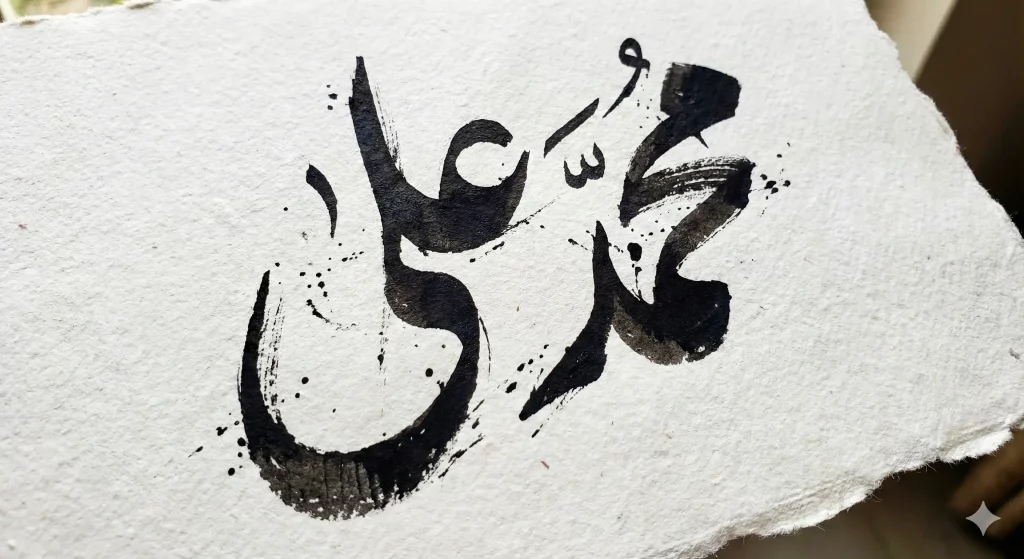 مُحمَّد علی